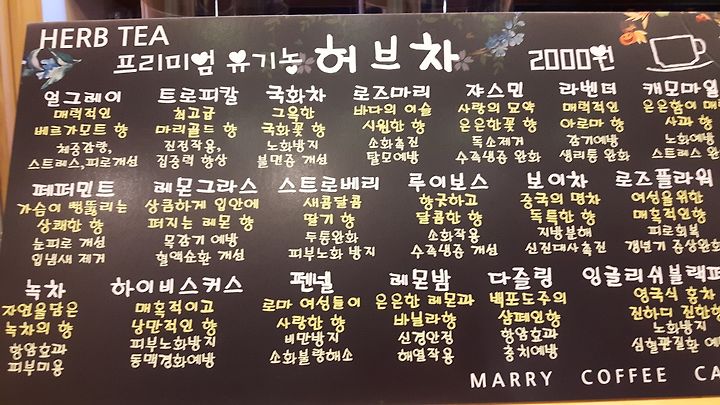 HERB TEA
프리미엄 유기농 허브차 2000원
얼그레이
매력적인
베르가모트 향
체중감량,
스트레스,피로개선
트로피칼
최고급
마리골드 향
진정작용,
집중력 향상
국화차
그윽한
국화꽃 향
노화방지
불면증 개선
로즈마리
바다의 이슬
시원한 향
소화촉진
탈모예방
쟈스민
사랑의 묘약
은은한꽃 향
독소제거
수족냉증 완화
라벤더
매력적인
아로마 향
감기예방
생리통 완화
캐모마일
은은함이
사과 향
노화예방
스트레스
페퍼민트
가슴이 뻥뚫리는
상쾌한 향
눈피로 개선
입냄새 제거
레몬그라스
상큼하게 입안에
퍼지는 레몬 향
목감기 예방
혈액순환 개선
스트로베리
새콤달콤
딸기 향
두통완화
피부노화 방지
루이보스
향긋하고
달콤한 향
소화작용
수족냉증 개선
보이차
중국의 명차
독특한 향
지방분해
신진대사촉진
로즈플라워
여성을위한
매혹적인향
피로회복
갱년기 증상완화
녹차
자연을담은
녹차의 향
항암효과
피부미용
하이비스커스
매혹적이고
낭만적인 향
피부노화방지
동맥경화예방
펜넬
로마 여성들이
사랑한 향
비만방지
소화불량해소
레몬밤
은은한 레몬과
바닐라향
신경안정
해열작용
다즐링
백포도주의
샴페인향
항암효과
충치예방
잉글리쉬블랙퍼
영국식 홍차
진하디 진한향
노화방지
심혈관질환 예
MARRY COFFEE CA